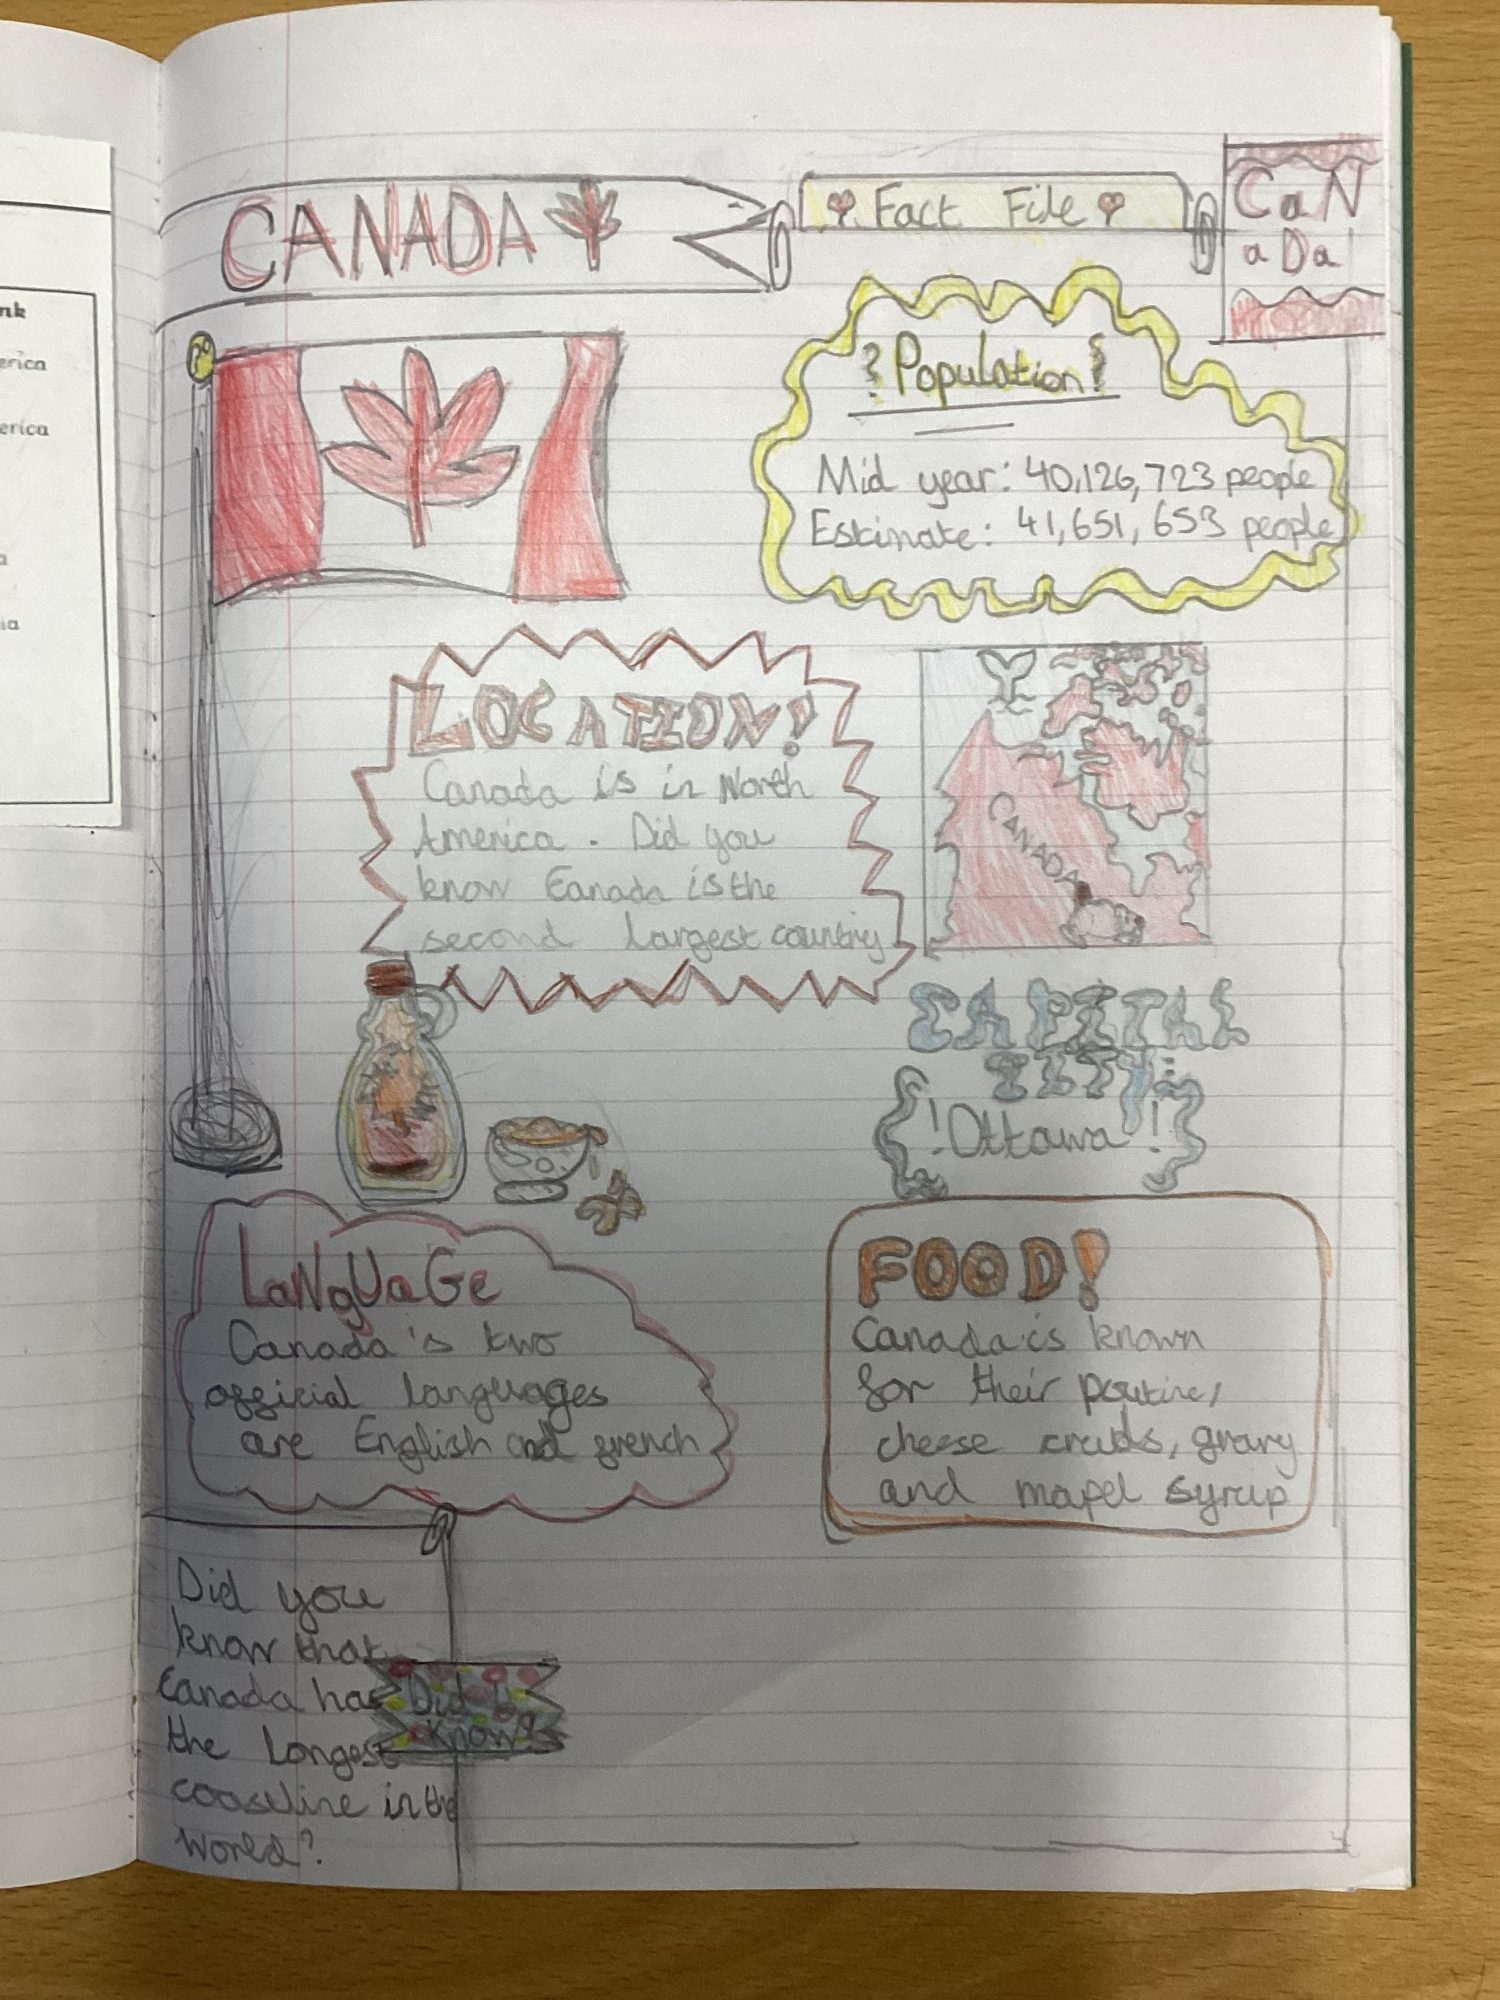 nk
erica
erica
a
ia
CANADA
Fact File
CaN
aDa!
Population!
Mid year: 40,126,723 people
Estimate: 41,651,653 people
LOCATION!
Canada is in North
America. Did you
know Canada is the
second largest country
CANADA
CAPITAL
CITY:
!Ottawa!
LaNgUaGe
Canada's two
official languages
are English and french
FOOD!
Canada is known
for their poutine,
cheese cruds, gravy
and mapel syrup
Did you
know that
Canada has
the Longest
coastline in the
world?
Did U
Know?